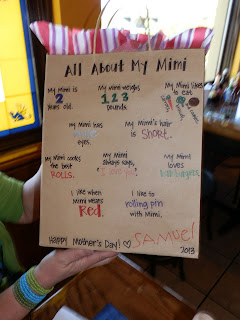 All About My Mimi
My Mimi is 2 years old.
My Mimi weighs 123 pounds.
My Mimi likes to eat
My Mimi has eyes.
My Mimi's hair is Short.
My Mimi cooks the best Rolls.
My Mimi always says, "I love you".
My Mimi loves
I like when Mimi wears Red.
I like to rolling pin with Mimi.
Happy Mother's Day! ♡ SAMUEL
2013